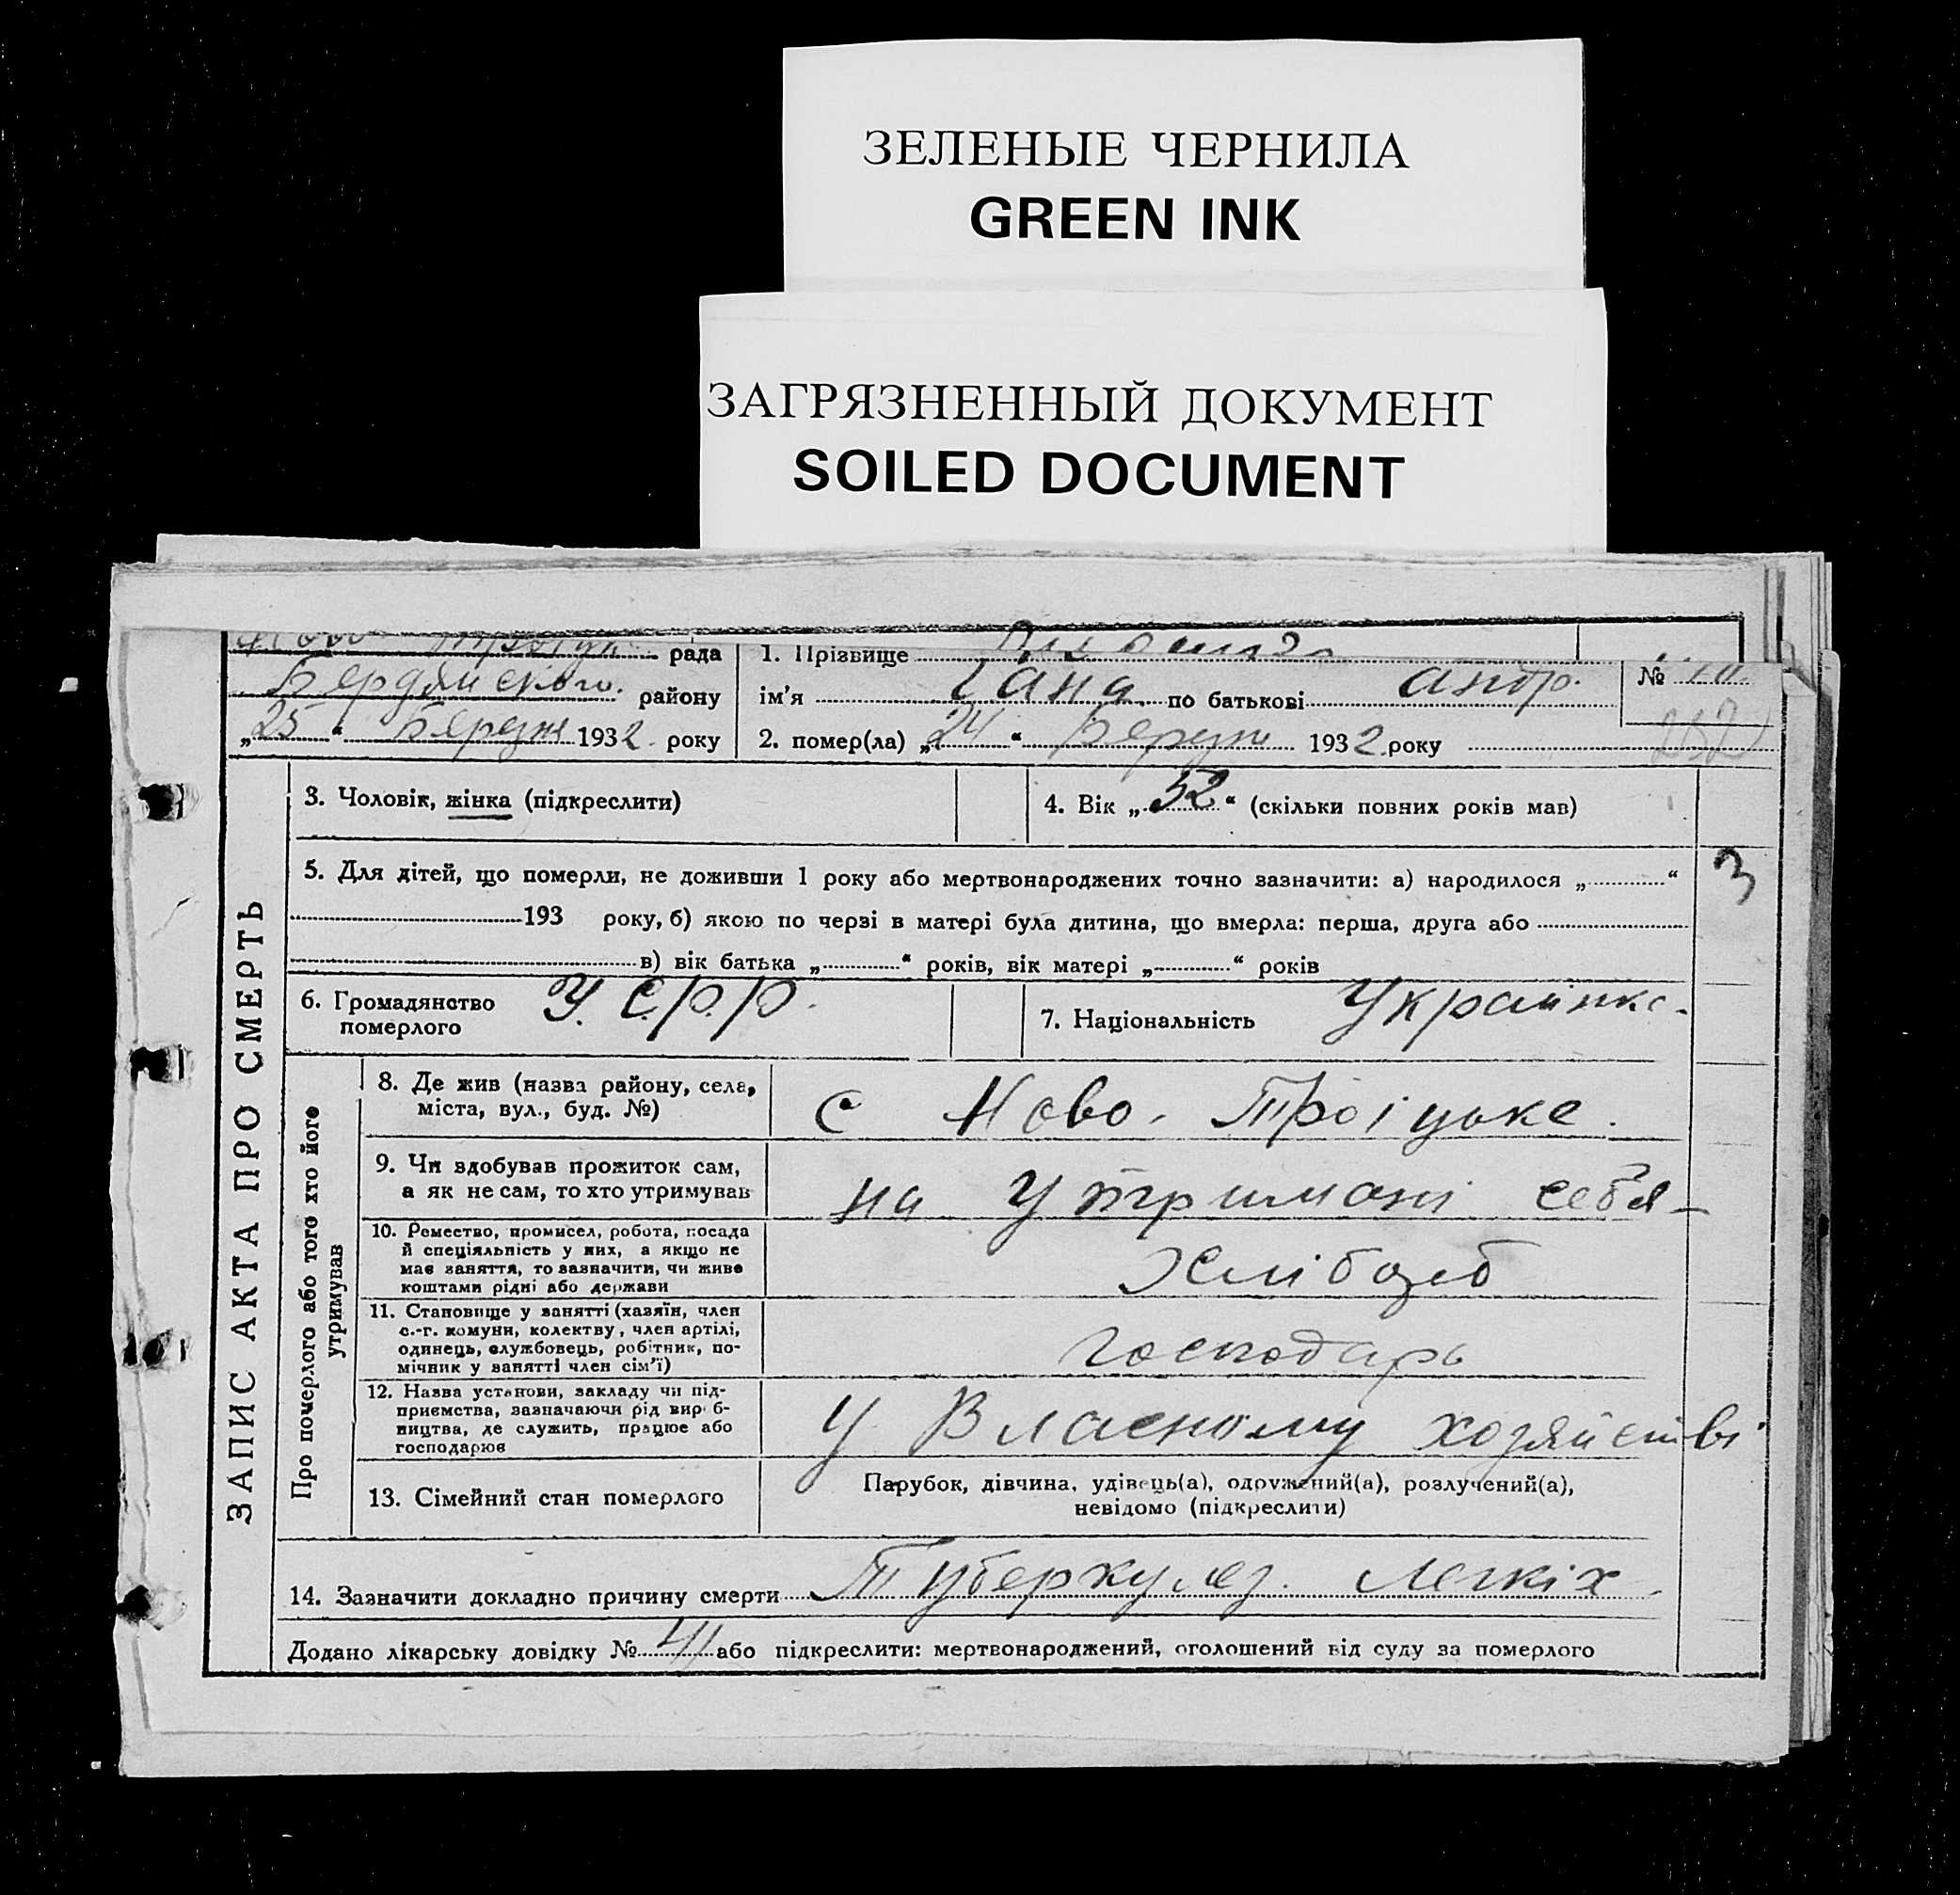 ЗЕЛЕНЫЕ ЧЕРНИЛА
GREEN INK
ЗАГРЯЗНЕННЫЙ ДОКУМЕНТ
SOILED DOCUMENT
рада
1. Прізвище
Бердянського району
ім'я Гана по батькові Андр. №
„25“ Березня 1932 року
2. помер(ла) „24“ Березня 1932 року
252
ЗАПИС АКТА ПРО СМЕРТЬ
3. Чоловік, жінка (підкреслити)
4. Вік „52“ (скільки повних років мав)
3
5. Для дітей, що померли, не доживши 1 року або мертвонароджених точно зазначити: а) народилося „ “
193 року, б) якою по черзі в матері була дитина, що вмерла: перша, друга або
в) вік батька „ “ років, вік матері „ “ років
6. Громадянство померлого У.С.Р.Р.
7. Національність Українка.
Про померлого або того хто його утримував
8. Де жив (назва району, села,
міста, вул., буд. №)
с Ново-Троіцьке.
9. Чи здобував прожиток сам,
а як не сам, то хто утримував
на утримані себя
10. Ремество, промисел, робота, посада
й спеціяльність у них, а якщо не
має заняття, то зазначити, чи живе
коштами рідні або держави
Хлібороб
11. Становище у занятті (хазяїн, член
с.-г. комуни, колектву, член артілі,
одинець, службовець, робітник, по-
мічник у занятті член сім'ї)
господарь
12. Назва установи, закладу чи під-
приємства, зазначаючи рід вироб-
ництва, де служить, працює або
господарює
у Власному хозяйстві
13. Сімейний стан померлого
Парубок, дівчина, удівець(а), одружений(а), розлучений(а),
невідомо (підкреслити)
14. Зазначити докладно причину смерти Туберкулез легкіх.
Додано лікарську довідку № 41 або підкреслити: мертвонароджений, оголошений від суду за померлого